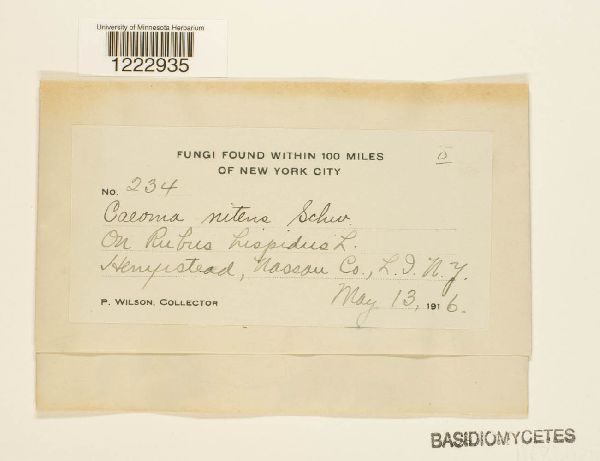 University of Minnesota Herbarium
1222935
FUNGI FOUND WITHIN 100 MILES
OF NEW YORK CITY
No. 234
Caeoma nitens Schw.
On Rubus hispidus L.
Hempstead, Nassau Co., L. I. N. Y.
P. WILSON, COLLECTOR
May 13, 1916.
BASIDIOMYCETES